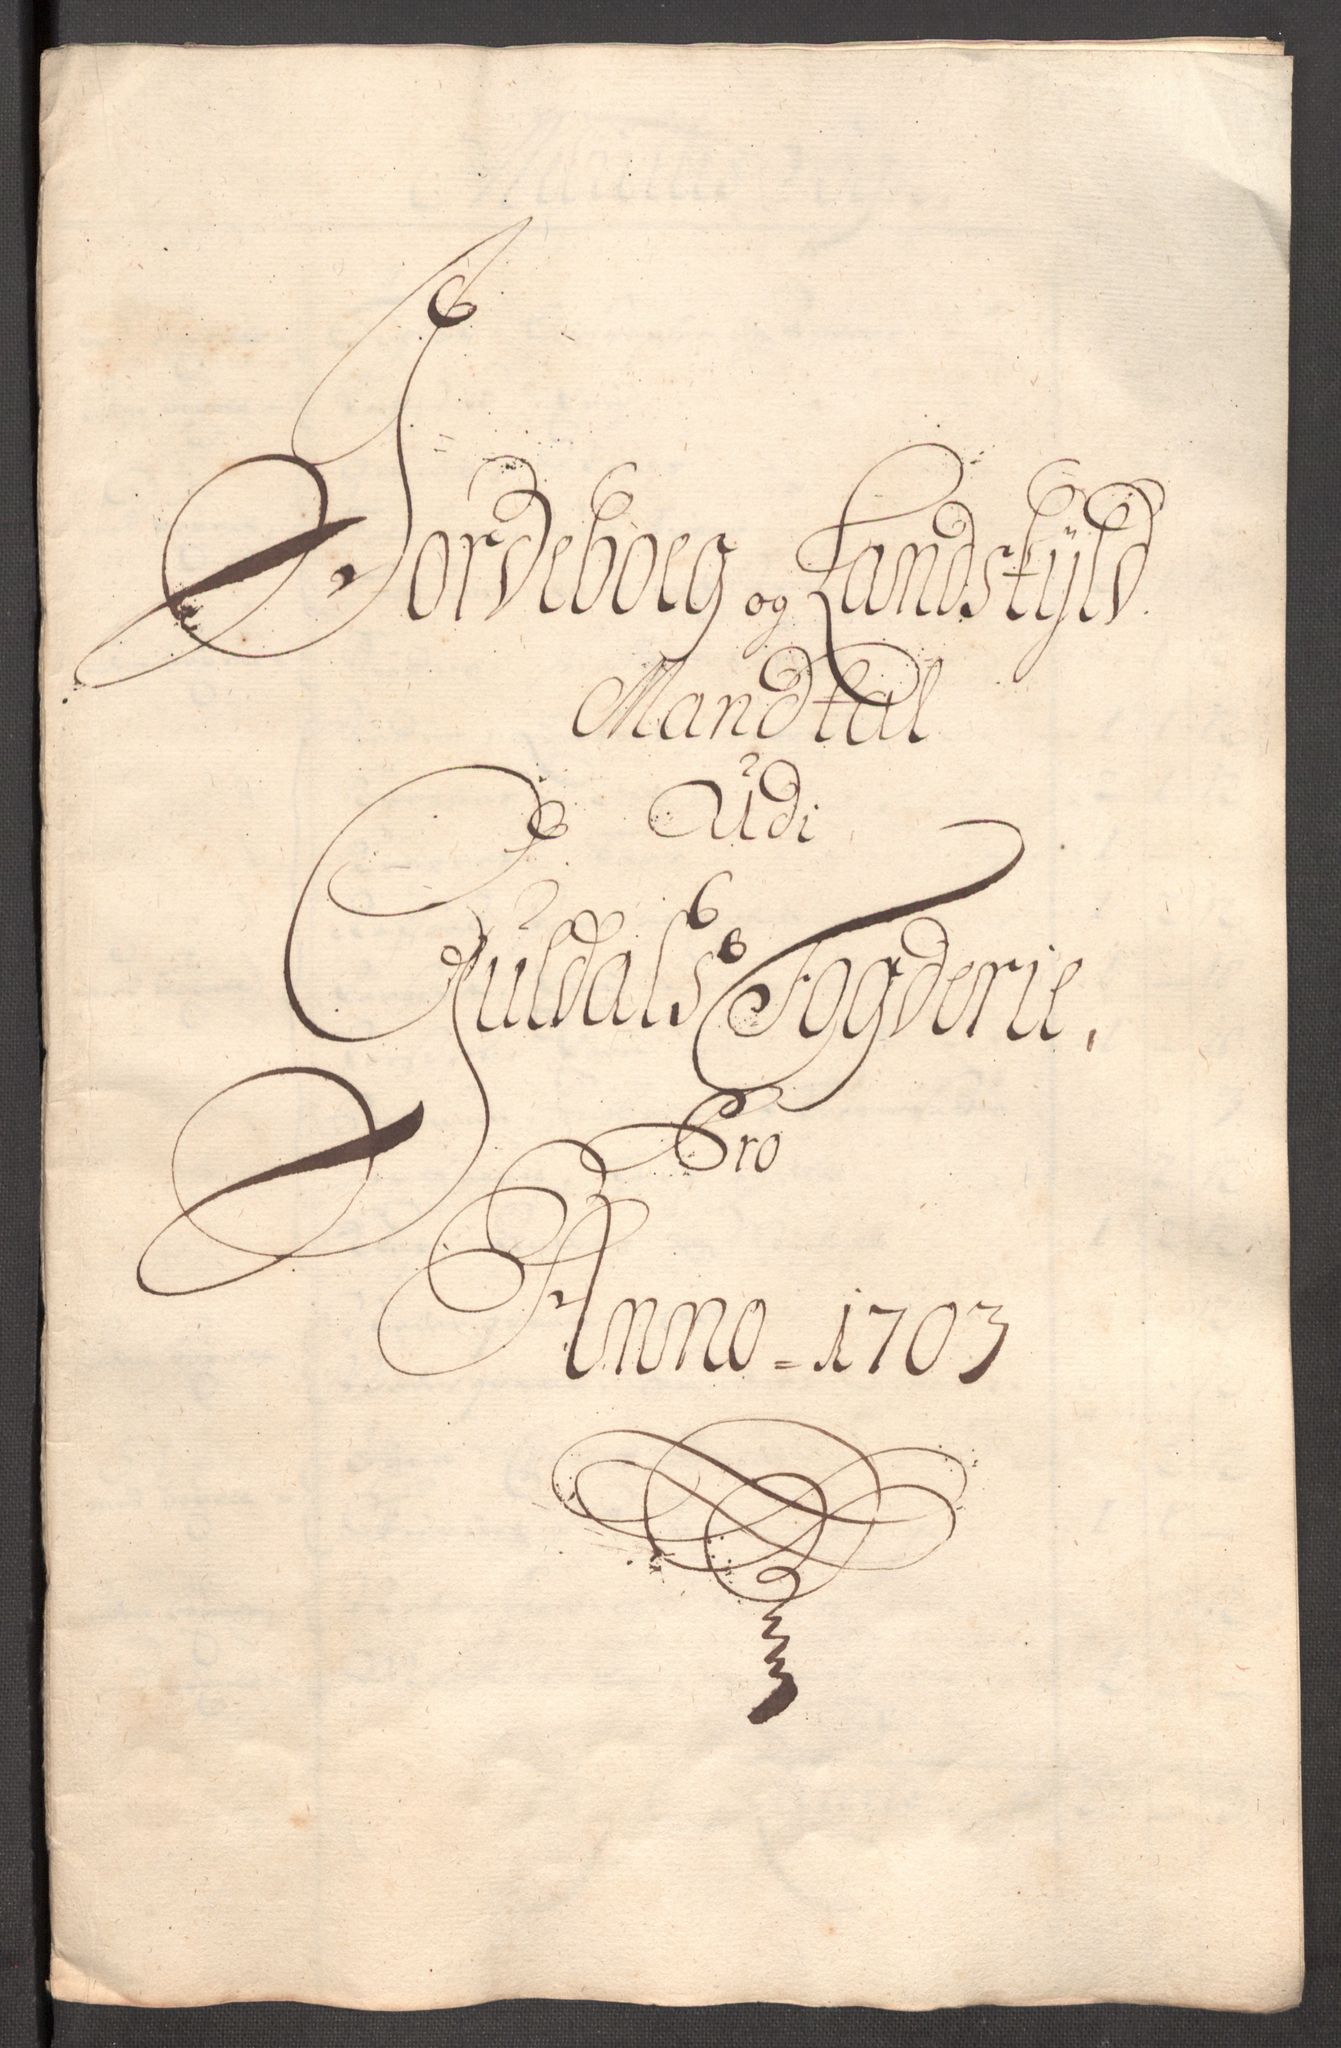 Jordeboeg og Landskÿld
Mandtal
Udi
Guldals Fogderie,
Pro
Anno = 1703